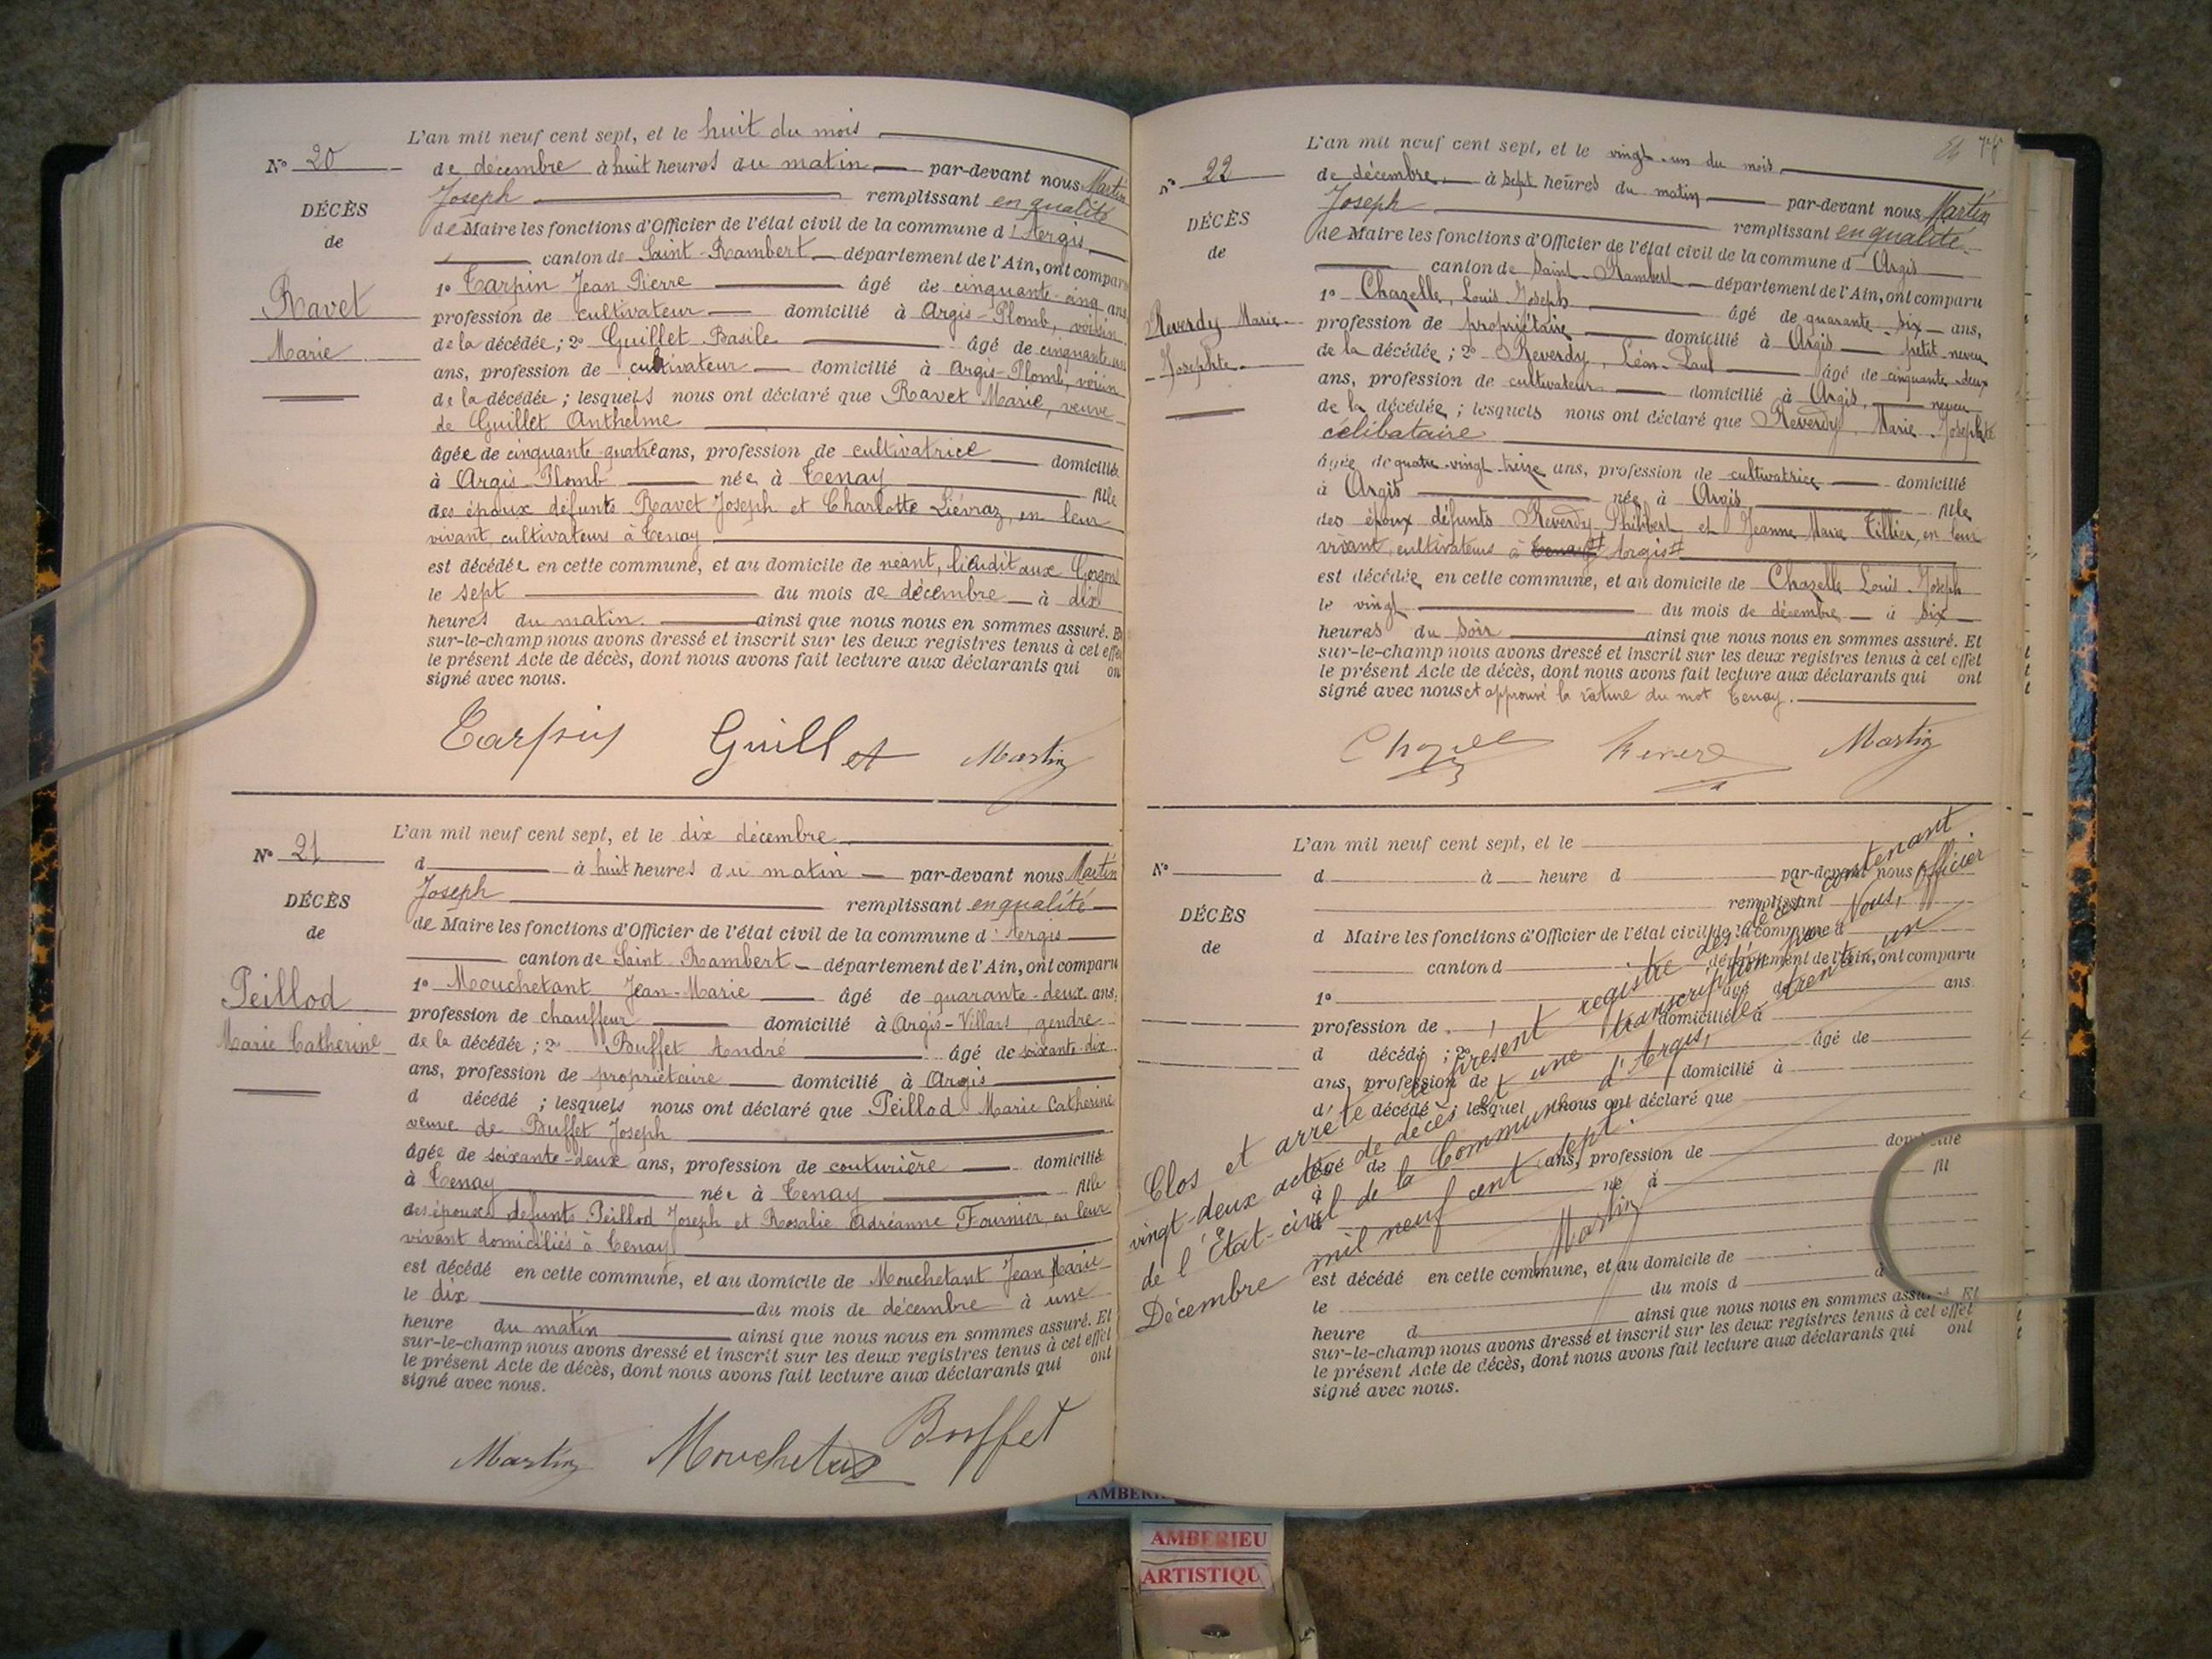 L'an mil neuf cent sept, et le huit du mois
N° 20
de décembre à huit heures du matin par-devant nous Martin
Joseph remplissant en qualité
DÉCÈS
de Maire les fonctions d'Officier de l'état civil de la commune d'Argis
de
canton de Saint-Rambert département de l'Ain, ont comparu
Ravet
Marie
1° Tarpin Jean Pierre âgé de cinquante-cinq ans
profession de cultivateur domicilié à Argis-Plomb, voisin
de la décédée ; 2° Guillet Basile âgé de cinquante
ans, profession de cultivateur domicilié à Argis-Plomb, voisin
de la décédée ; lesquels nous ont déclaré que Ravet Marie, veuve
de Guillet Anthelme
âgée de cinquante-quatre ans, profession de cultivatrice domiciliée
à Argis-Plomb née à Tenay fille
des époux défunts Ravet Joseph et Charlotte Liévraz, en leur
vivant, cultivateurs à Tenay
est décédée en cette commune, et au domicile de néant, lieudit aux
le sept du mois de décembre à dix
heures du matin ainsi que nous nous en sommes assuré. Et
sur-le-champ nous avons dressé et inscrit sur les deux registres tenus à cet effet
le présent Acte de décès, dont nous avons fait lecture aux déclarants qui ont
signé avec nous.
Tarpin Guillet Martin
L'an mil neuf cent sept, et le dix décembre
N° 21
d à huit heures du matin par-devant nous Martin
Joseph remplissant en qualité
DÉCÈS
de Maire les fonctions d'Officier de l'état civil de la commune d'Argis
de
canton de Saint-Rambert département de l'Ain, ont comparu
Peillod
Marie Catherine
1° Mouchetant Jean-Marie âgé de quarante-deux ans,
profession de chauffeur domicilié à Argis-Villars, gendre
de la décédée ; 2° Buffet André âgé de soixante-dix
ans, profession de propriétaire domicilié à Argis
d décédé ; lesquels nous ont déclaré que Peillod Marie Catherine
veuve de Buffet Joseph
âgée de soixante-deux ans, profession de couturière domiciliée
à Tenay née à Tenay fille
des époux défunts Peillod Joseph et Rosalie Adréanne Fournier, en leur
vivant domiciliés à Tenay
est décédé en cette commune, et au domicile de Mouchetant Jean Marie
le dix du mois de décembre à une
heure du matin ainsi que nous nous en sommes assuré. Et
sur-le-champ nous avons dressé et inscrit sur les deux registres tenus à cet effet
le présent Acte de décès, dont nous avons fait lecture aux déclarants qui ont
signé avec nous.
Martin Mouchetant Buffet
L'an mil neuf cent sept, et le vingt-un du mois
N° 22
de décembre à sept heures du matin par-devant nous Martin
Joseph remplissant en qualité
DÉCÈS
de Maire les fonctions d'Officier de l'état civil de la commune d Argis
de
canton de Saint-Rambert département de l'Ain, ont comparu
Reverdy Marie
Josephte
1° Chazelle, Louis Joseph âgé de quarante-six ans,
profession de propriétaire domicilié à Argis petit-neveu
de la décédée ; 2° Reverdy, Léon-Paul âgé de cinquante-deux
ans, profession de cultivateur domicilié à Argis, neveu
de la décédée ; lesquels nous ont déclaré que Reverdy Marie-Josephte
célibataire
âgée de quatre-vingt-treize ans, profession de cultivatrice domicilié
à Argis née à Argis fille
des époux défunts Reverdy Philibert et Jeanne Marie Tillier, en leur
vivant cultivateurs à Tenay Argis
est décédée en cette commune, et au domicile de Chazelle Louis-Joseph
le vingt du mois de décembre à six
heures du soir ainsi que nous nous en sommes assuré. Et
sur-le-champ nous avons dressé et inscrit sur les deux registres tenus à cet effet
le présent Acte de décès, dont nous avons fait lecture aux déclarants qui ont
signé avec nous et approuvé la rature du mot Tenay.
Martin
L'an mil neuf cent sept, et le
N°
d à heure d par-devant nous
remplissant
DÉCÈS
d Maire les fonctions d'Officier de l'état civil de la commune d
de
canton d département de l'Ain, ont comparu
1° âgé de ans
profession de domicilié à
d décédé ; 2° âgé de
ans, profession de domicilié à
d décédé ; lesquel nous ont déclaré que
âgé de ans, profession de domicilié
à né à fil
est décédé en cette commune, et au domicile de
le du mois d à
heure d ainsi que nous nous en sommes assuré. Et
sur-le-champ nous avons dressé et inscrit sur les deux registres tenus à cet effet
le présent Acte de décès, dont nous avons fait lecture aux déclarants qui ont
signé avec nous.
Clos et arrêté le présent registre des décès contenant
vingt-deux actes de décès et une transcription par Nous, Officier
de l'Etat-civil de la Commune d'Argis, le trente un
Décembre mil neuf cent sept.
Martin
AMBERIEU
ARTISTIQU